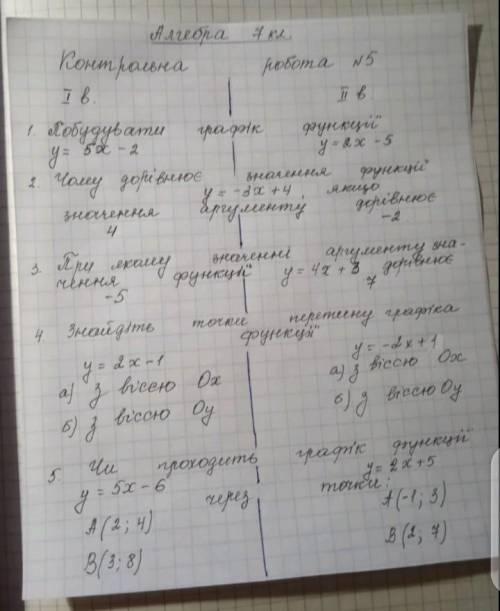 Алгебра 7 кл.
Контрольна робота №5
I в. II в
1. Побудувати графік функції
y = 5x - 2 y = 2x - 5
2. Чому дорівнює значення функції
y = -3x + 4 якщо
значення аргументу дорівнює
4 -2
3. При якому значенні аргументу зна-
чення функції y = 4x + 3 дорівнює
-5 7
4 Знайдіть точки перетину графіка
функції
y = 2x - 1 y = -2x + 1
а) з віссю Ox а) з віссю Ox
б) з віссю Oy б) з віссю Oy
5. Чи проходить графік функції
y = 5x - 6 через точки: y = 2x + 5
A(2; 4) A(-1; 3)
B(3; 8) B(2; 7)